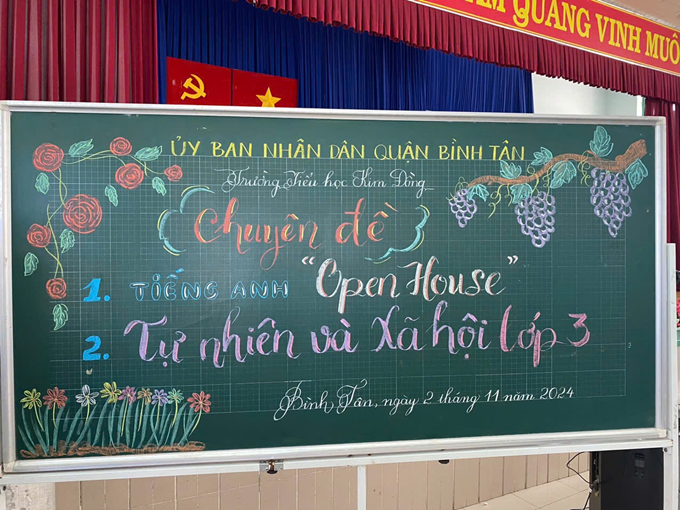 AM QUANG VINH MUÔ
ỦY BAN NHÂN DÂN QUẬN BÌNH TÂN
Trường Tiểu học Kim Đồng
Chuyên đề
1. TIẾNG ANH "Open House"
2. Tự nhiên và Xã hội lớp 3
Bình Tân, ngày 2 tháng 11 năm 2024